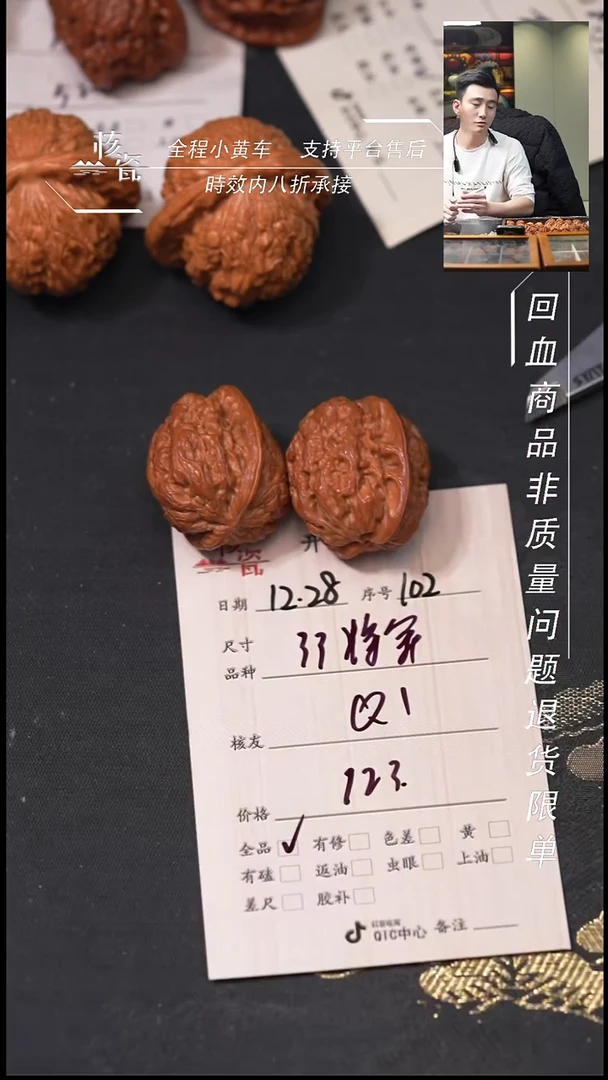 核瓷
全程小黄车 支持平台售后
時效内八折承接
回血商品非质量问题退货限单
核瓷
日期 12.28 序号 102
尺寸
品种 33将军
核友
价格 123.
全品 ✓ 有修 色差 黄
有磕 返油 虫眼 上油
差尺 胶补
QIC中心 备注